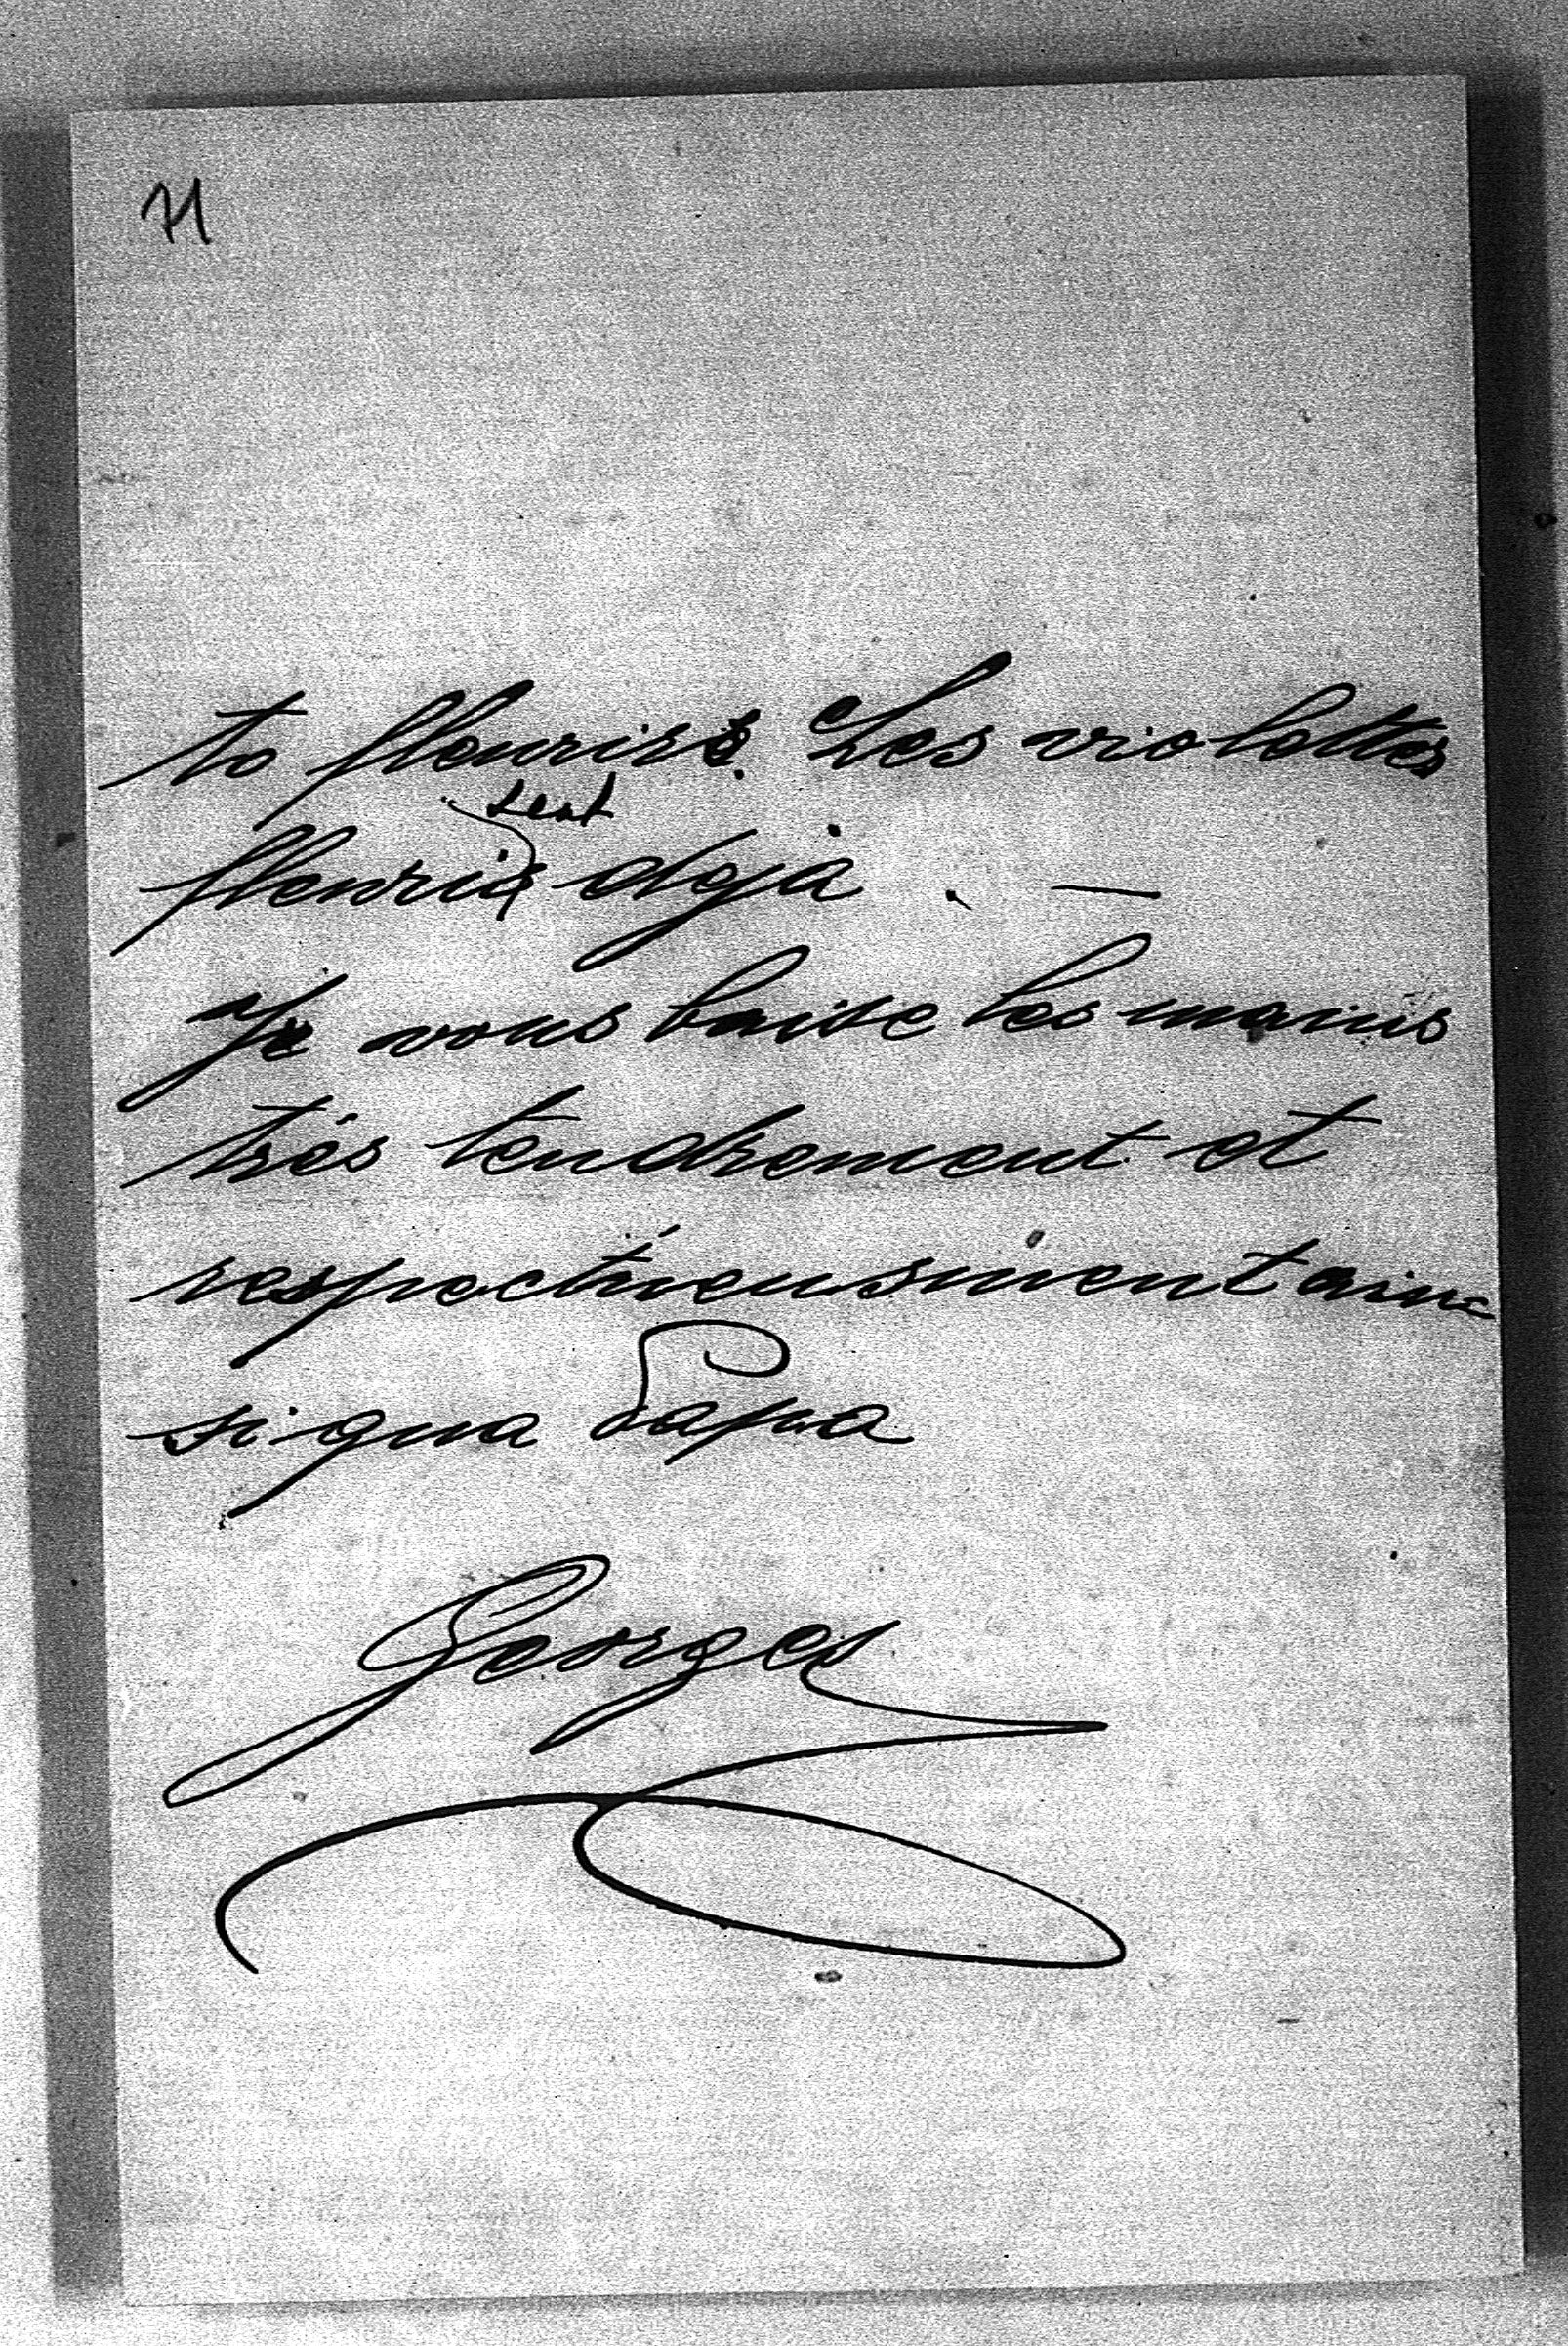 71
to fleurirs. Les violettes
sent
fleuris deja . —
Je vous baise les mains
très tendrement et
respectueusment ainc
si qua Papa
Georges